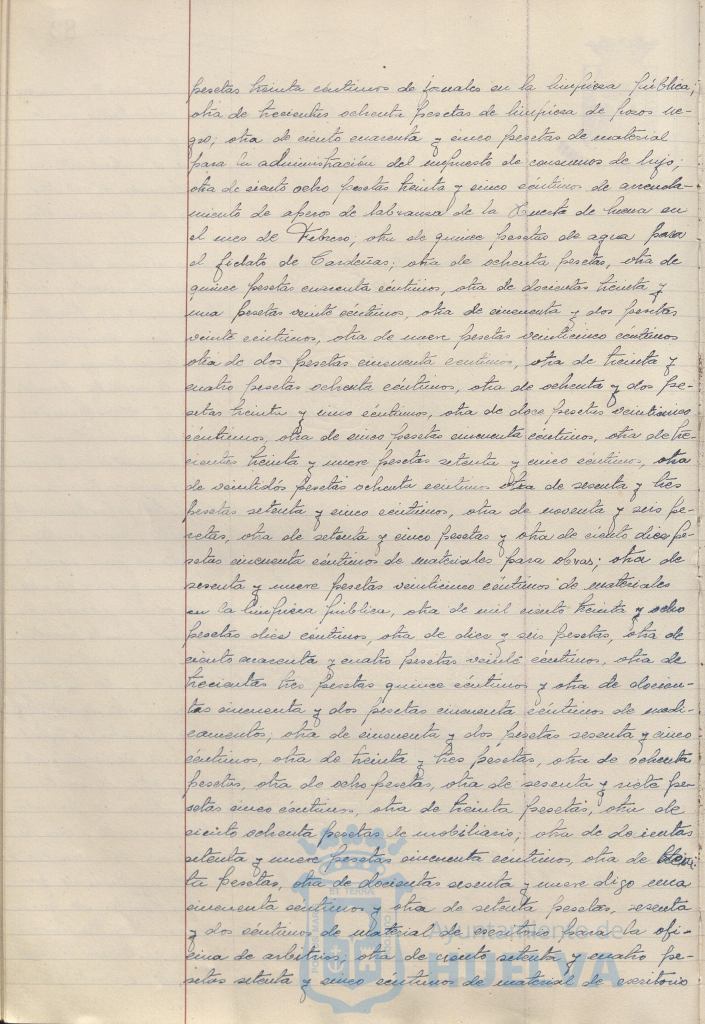 pesetas treinta céntimos de jornales en la limpieza pública;
otra de trecientas ochenta pesetas de limpieza de pozos ne-
gro; otra de ciento cuarenta y cinco pesetas de material
para la administración del impuesto de consumos de lujo;
otra de ciento ocho pesetas treinta y cinco céntimos de arrenda-
miento de aperos de labranza de la Huerta de Mena en
el mes de Febrero; otra de quince pesetas de agua para
el fielato de Cardeñas; otra de ochenta pesetas, otra de
quince pesetas cuarenta céntimos, otra de docientas treinta y
una pesetas veinte céntimos, otra de cincuenta y dos pesetas
veinte céntimos, otra de nueve pesetas veinticinco céntimos
otra de dos pesetas cincuenta céntimos, otra de treinta y
cuatro pesetas ochenta céntimos, otra de ochenta y dos pe-
setas treinta y cinco céntimos, otra de doce pesetas veinticinco
céntimos, otra de cinco pesetas cincuenta céntimos, otra de tre-
cientas treinta y nueve pesetas setenta y cinco céntimos, otra
de veintidós pesetas ochenta céntimos otra de sesenta y tres
pesetas setenta y cinco céntimos, otra de noventa y seis pe-
setas, otra de setenta y cinco pesetas y otra de ciento diez pe-
setas cincuenta céntimos de materiales para obras; otra de
sesenta y nueve pesetas veinticinco céntimos de materiales
en la limpieza pública, otra de mil ciento treinta y ocho
pesetas diez céntimos, otra de diez y seis pesetas, otra de
ciento cuarenta y cuatro pesetas veinte céntimos, otra de
trecientas tres pesetas quince céntimos y otra de docien-
tas cincuenta y dos pesetas cincuenta céntimos de medi-
camentos; otra de cincuenta y dos pesetas sesenta y cinco
céntimos, otra de treinta y tres pesetas, otra de ochenta
pesetas, otra de ocho pesetas, otra de sesenta y siete pe-
setas cinco céntimos, otra de treinta pesetas, otra de
ciento ochenta pesetas de mobiliario; otra de docientas
setenta y nueve pesetas cincuenta céntimos, otra de trein-
ta pesetas, otra de docientas sesenta y nueve digo una
cincuenta céntimos y otra de setenta pesetas, sesenta
y dos céntimos de material de escritorio para la ofi-
cina de arbitrios; otra de ciento setenta y cuatro pe-
setas setenta y cinco céntimos de material de escritorio
Ayuntamiento de
HUELVA